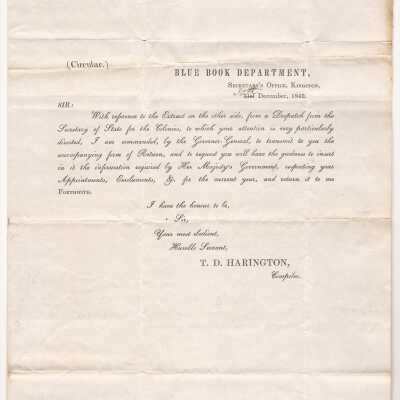 (Circular.)
BLUE BOOK DEPARTMENT,
Secretary's Office, Kingston,
31st December, 1842.
SIR:
With reference to the Extract on the other side, from a Despatch from the
Secretary of State for the Colonies, to which your attention is very particularly
directed, I am commanded, by the Governor General, to transmit to you the
accompanying form of Return, and to request you will have the goodness to insert
in it the information required by Her Majesty's Government, respecting your
Appointments, Emoluments, &. for the current year, and return it to me
Forthwith.
I have the honour to be,
Sir,
Your most obedient,
Humble Servant,
T. D. HARINGTON,
Compiler.